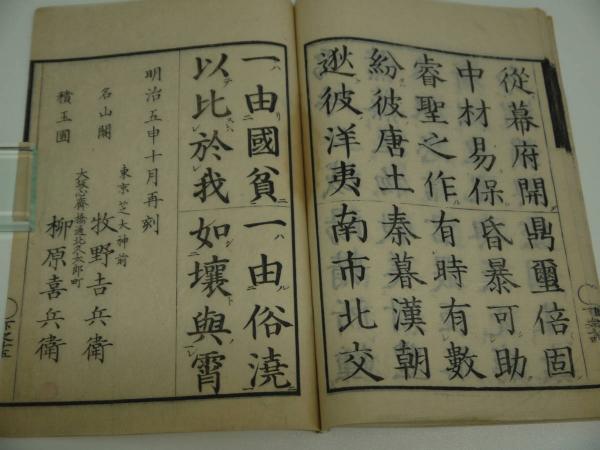 從幕府開鼎璽倍固
中材易保昏暴可助
睿聖之作有時有數
紛彼唐土秦暮漢朝
逖彼洋夷南市北交
一由國貧一由俗澆
以比於我如壤與霄
明治五申十月再刻
東京芝大神前
名山閣 牧野吉兵衛
大坂心齋橋通北久太郎町
積玉圃 柳原喜兵衛